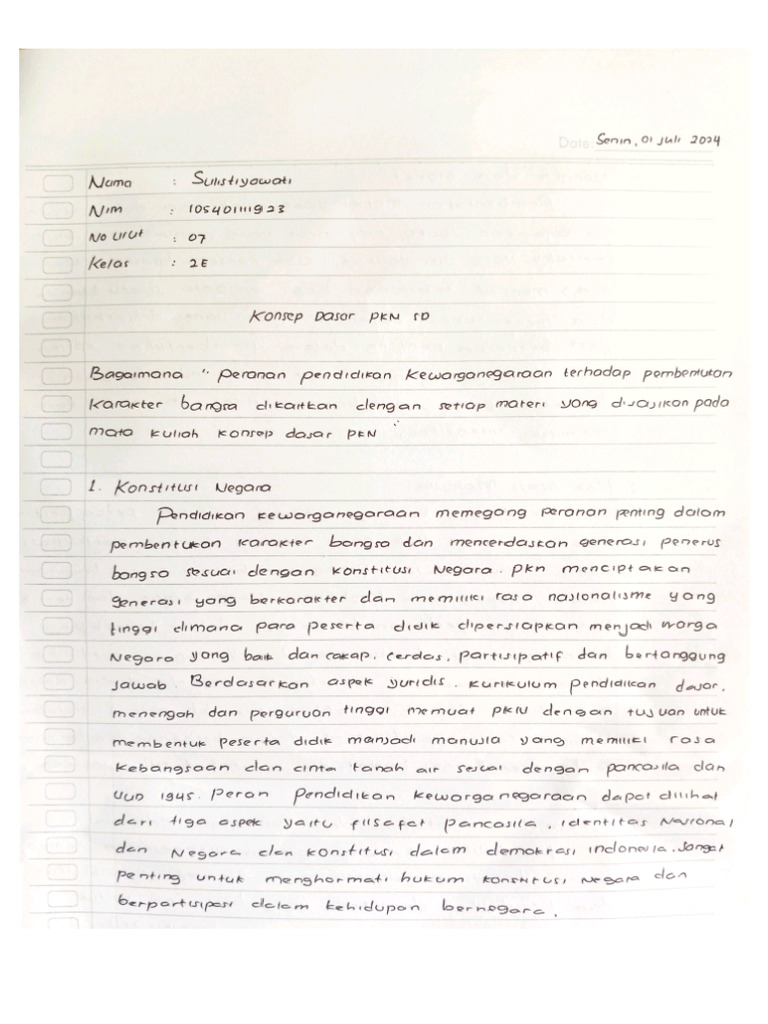 Date: Senin, 01 Juli 2024
Nama : Sulistiyawati
Nim : 105401111923
No Urut : 07
Kelas : 2E
Konsep Dasar PKN SD
Bagaimana " peranan pendidikan Kewarganegaraan terhadap pembentukan
Karakter bangsa dikaitkan dengan setiap materi yang disajikan pada
mata kuliah konsep dasar PKN "
1. Konstitusi Negara
Pendidikan kewarganegaraan memegang peranan penting dalam
pembentukan karakter bangsa dan mencerdaskan generasi penerus
bangsa sesuai dengan konstitusi Negara. PKn menciptakan
generasi yang berkarakter dan memiliki rasa nasionalisme yang
tinggi dimana para peserta didik dipersiapkan menjadi warga
Negara yang baik dan cakap, cerdas, partisipatif dan bertanggung
jawab. Berdasarkan aspek yuridis, kurikulum pendidikan dasar,
menengah dan perguruan tinggi memuat PKN dengan tujuan untuk
membentuk peserta didik manjadi manusia yang memiliki rasa
kebangsaan dan cinta tanah air sesuai dengan pancasila dan
UUD 1945. Peran Pendidikan Kewarganegaraan dapat dilihat
dari tiga aspek yaitu filsafat Pancasila, identitas Nasional
dan Negara dan konstitusi dalam demokrasi indonesia. Sangat
penting untuk menghormati hukum konstitusi Negara dan
berpartisipasi dalam kehidupan bernegara.